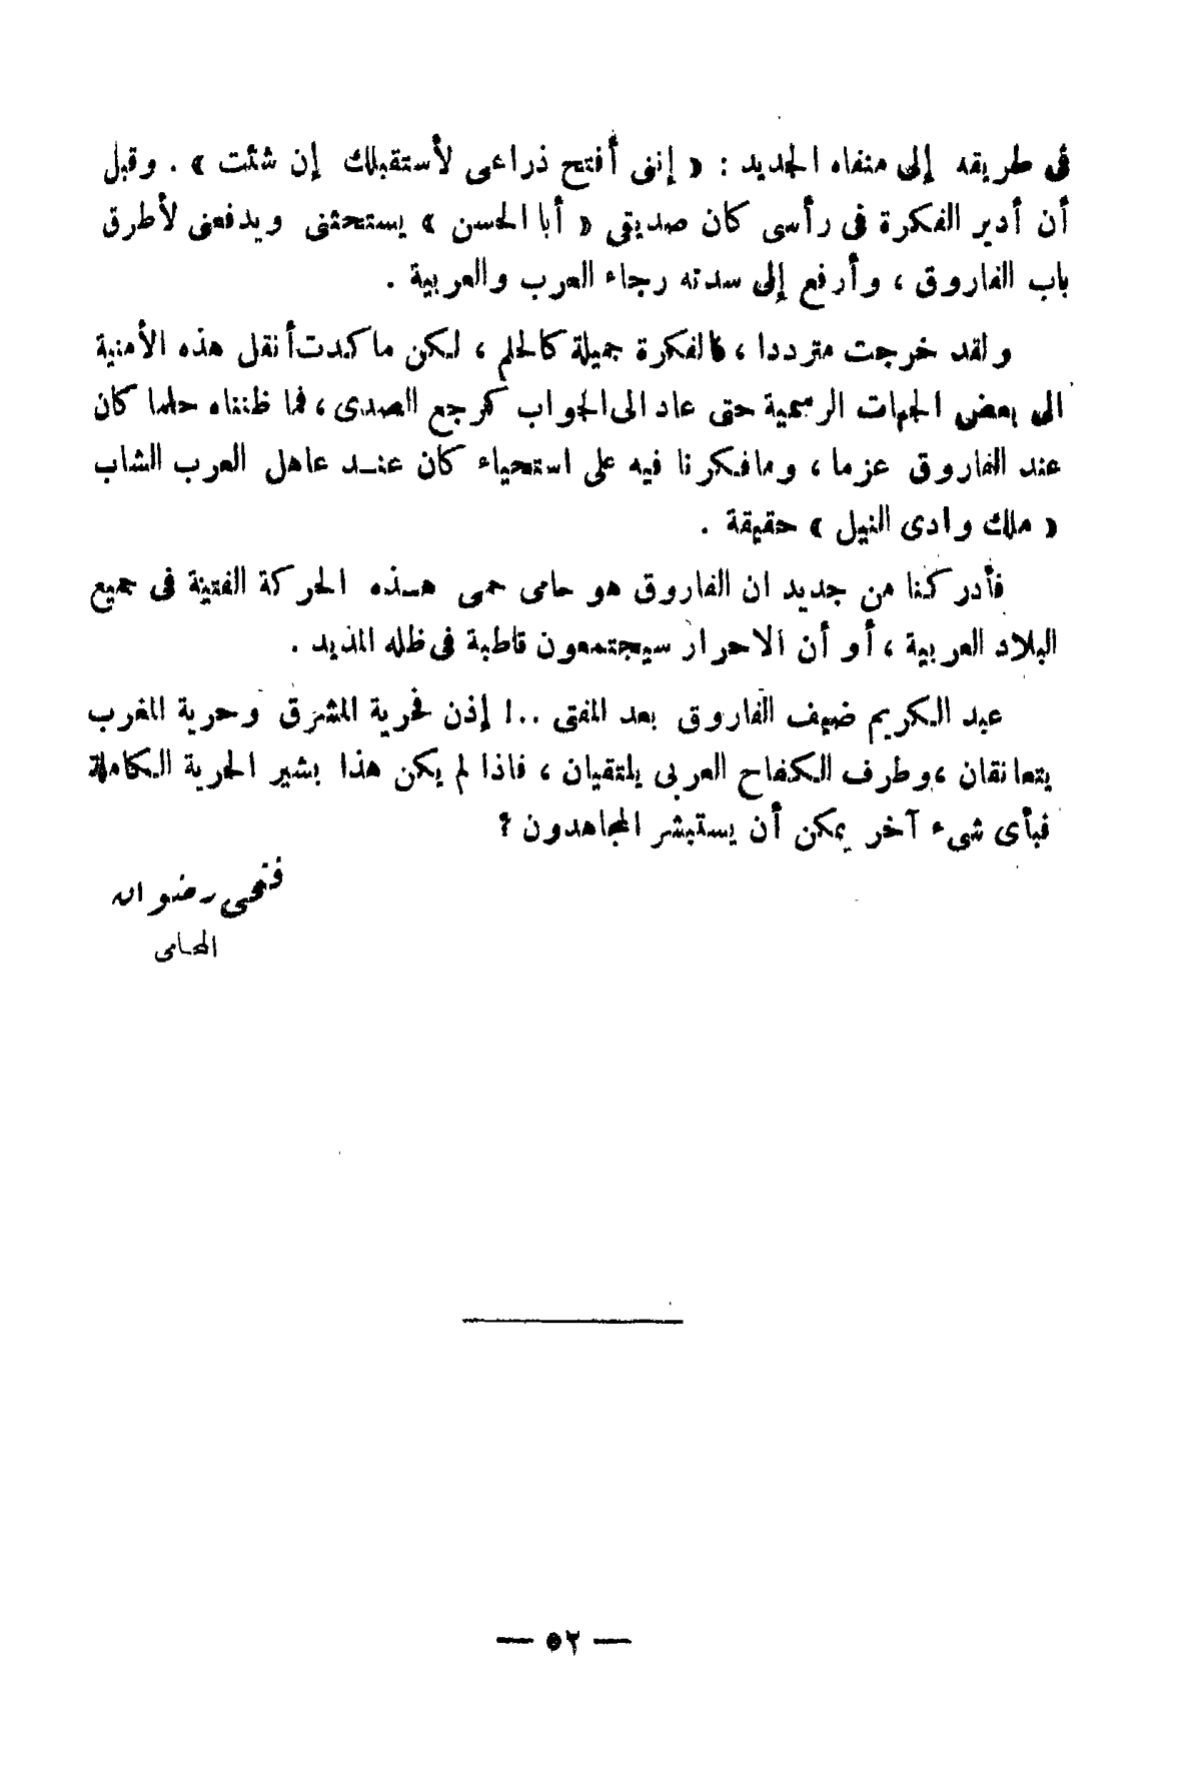 فى طريقه إلى منفاه الجديد : « إننى أفتح ذراعى لأستقبلك إن شئت » . وقبل
أن أدير الفكرة فى رأسى كان صديقى « أبا الحسن » يستحثنى ويدفعنى لأطرق
باب الفاروق ، وأرفع إلى سدته رجاء العرب والعربية .
ولقد خرجت مترددا ، فالفكرة جميلة كالحلم ، لكن ما كدت أنقل هذه الأمنية
الى بعض الجهات الرسمية حتى عاد الى الجواب كرجع الصدى ، فما ظنناه حلما كان
عند الفاروق عزما ، وما فكرنا فيه على استحياء كان عند عاهل العرب الشاب
« ملك وادى النيل » حقيقة .
فأدركنا من جديد ان الفاروق هو حامى حمى هذه الحركة الفتية فى جميع
البلاد العربية ، أو أن الاحرار سيجتمعون قاطبة فى ظله المديد .
عبد الكريم ضيف الفاروق بعد المفتى ..! إذن فحرية المشرق وحرية المغرب
يتعانقان ، وطرف الكفاح العربى يلتقيان ، فاذا لم يكن هذا بشير الحرية الكاملة
فبأى شىء آخر يمكن أن يستبشر المجاهدون ؟
فتحى رضوان
المحامى
— ٥٢ —